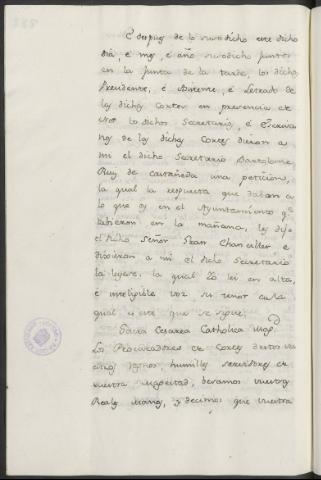 E despues de lo susodicho este dicho
dia, e mes, e año susodicho juntos
en la Junta de la tarde, los dichos
Presidente, e Asistente, e Letrado de
las dichas Cortes en presencia de
nos los dichos Secretarios, é Escriva
nos de las dichas Cortes dieron a
mi el dicho Secretario Bartolome
Ruiz de Castañeda una peticion,
la qual la respuesta que daban a
lo que oy en el Ayuntamiento q.e
tubieron en la mañana, les dijo
el dicho Señor Gran Chanciller e
dixeron a mi el dicho Secretario
la leyese, la qual Yo lei en alta,
e inteligible voz su tenor de la
qual es este que se sigue:
Sacra Cesarea Catholica Mag.d
Los Procuradores de Cortes destos
Reynos humilles servidores de
vuestra Magestad, besamos vuestras
Reales manos, y decimos que vuestra